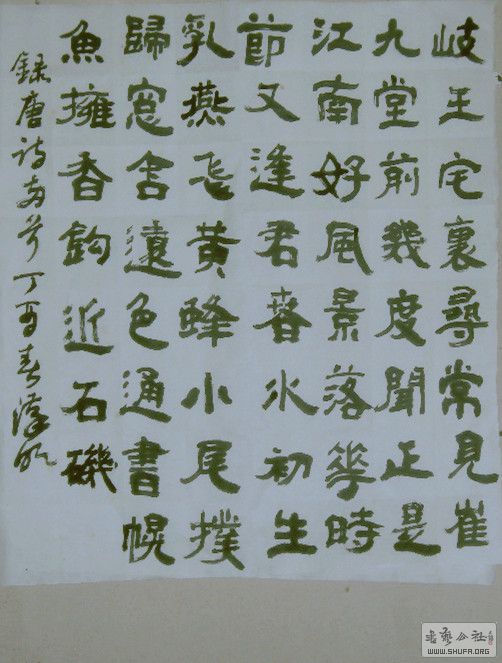 岐王宅裏尋常見崔
九堂前幾度聞正是
江南好風景落花時
節又逢君春水初生
乳燕飛黃蜂小尾撲
歸窓含遠色通書幌
魚擁香鈎近石磯
錄唐詩兩首丁酉春
WWW.SHUFA.ORG